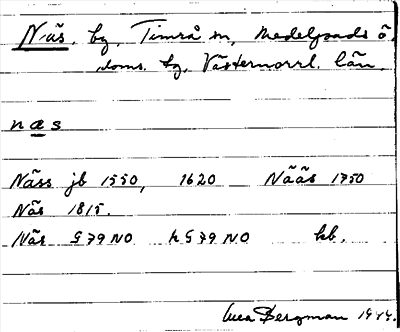 Näs, by, Timrå sn, Medelpads ö.
doms. tg. Västernorrl. län.
næs
Näss jb 1550, 1620 Nääs 1750
Näs 1815.
Näs G79NO k G79NO kb.
Bergman 1944.